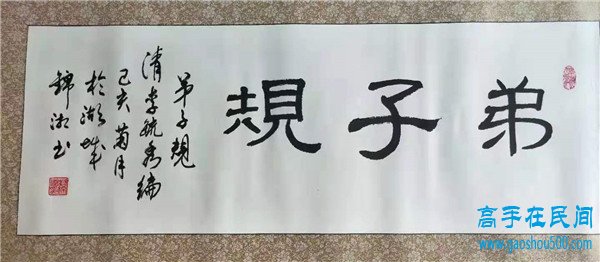 弟子規
弟子規
清李毓秀编
己亥菊月
於湖城
锦湘书
高手在民间
www.gaoshou500.com